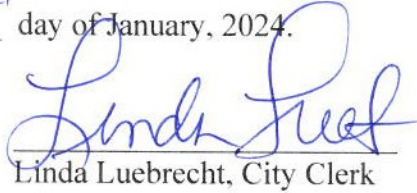 day of January, 2024.
Linda Lueb
Linda Luebrecht, City Clerk